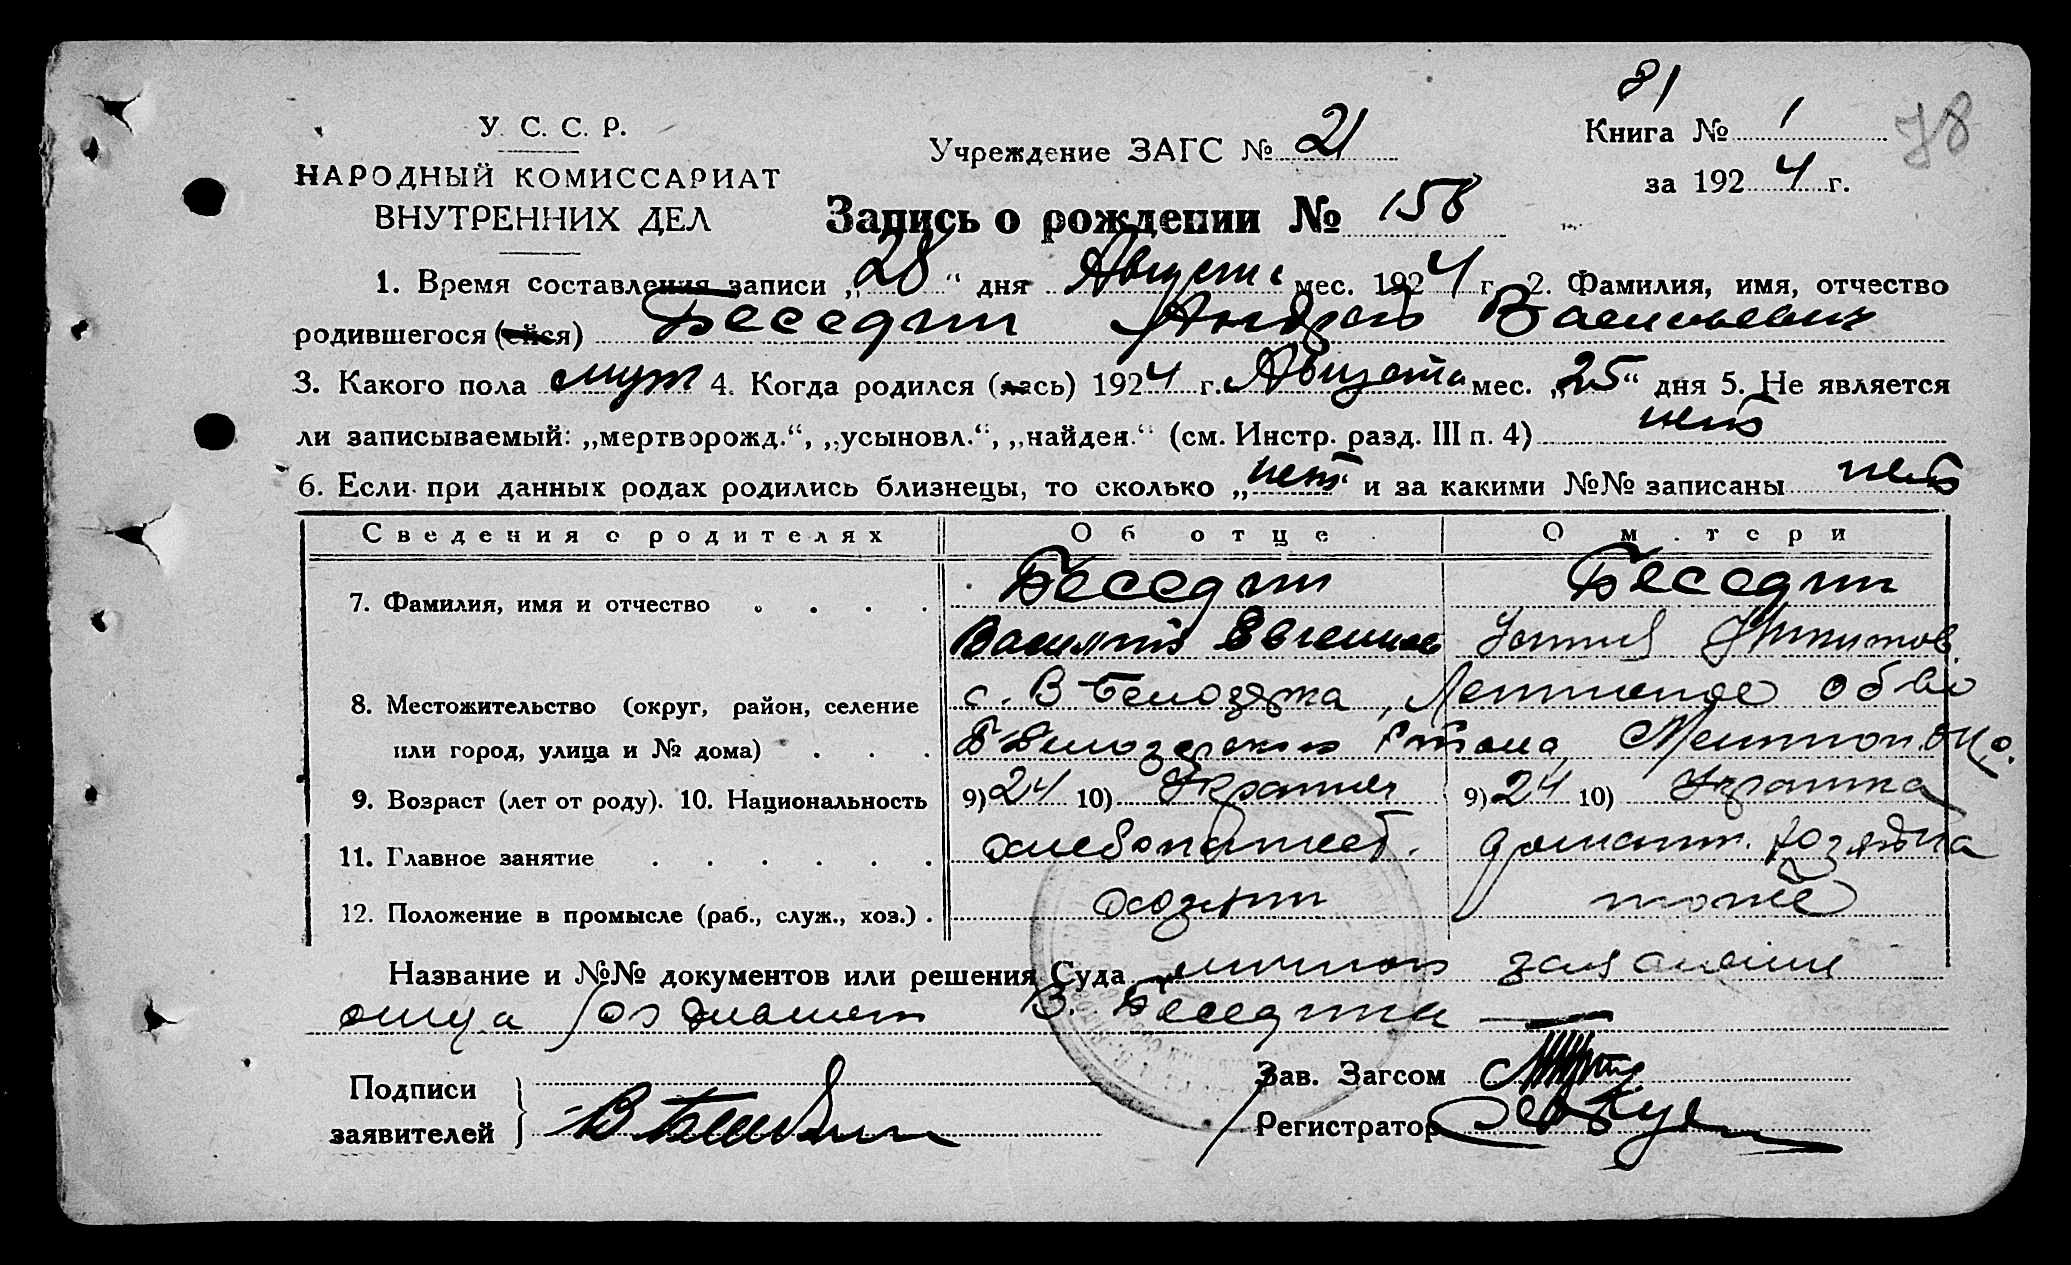 81
У. С. С. Р.
НАРОДНЫЙ КОМИССАРИАТ
ВНУТРЕННИХ ДЕЛ
Учреждение ЗАГС № 21
Книга № 1
78
за 1924 г.
Запись о рождении № 156
1. Время составления записи „28“ дня Августа мес. 1924 г. 2. Фамилия, имя, отчество
родившегося (ейся) Беседин Андрей Васильевич
3. Какого пола муж 4. Когда родился (лась) 1924 г. Августа мес. „25“ дня 5. Не является
ли записываемый: „мертворожд.“, „усыновл.“, „найден.“ (см. Инстр. разд. III п. 4) нет
6. Если при данных родах родились близнецы, то сколько „нет“ и за какими №№ записаны нет
Сведения о родителях Об отце О м.тери
7. Фамилия, имя и отчество Беседин Беседин
Василий Евгениев
8. Местожительство (округ, район, селение с. В Белозерка,
или город, улица и № дома) В Белозерского района, Мелитоп. окр.
9. Возраст (лет от роду). 10. Национальность 9) 24 10) Украинец 9) 24 10) Украинка
11. Главное занятие хлебопашест. домашн. хозяйка
12. Положение в промысле (раб., служ., хоз.) хозяин тоже
Название и №№ документов или решения Суда личное заявление
отца В. Беседина
Подписи
заявителей
Зав. Загсом
Регистратор